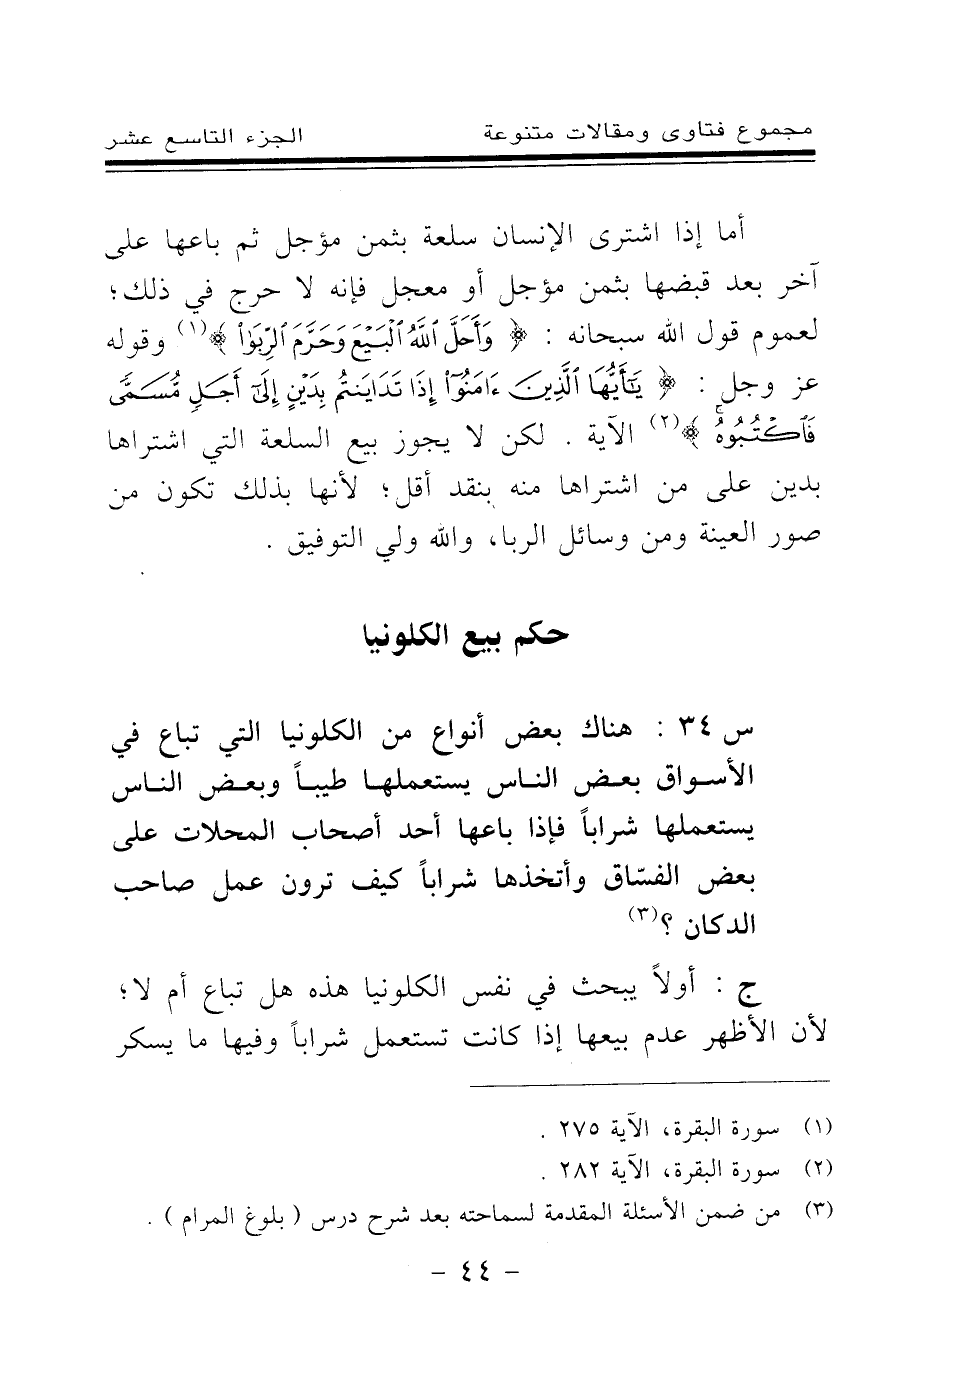 مجموع فتاوى ومقالات متنوعة الجزء التاسع عشر
أما إذا اشترى الإنسان سلعة بثمن مؤجل ثم باعها على
آخر بعد قبضها بثمن مؤجل أو معجل فإنه لا حرج في ذلك؛
لعموم قول الله سبحانه : ﴿ وَأَحَلَّ ٱللَّهُ ٱلْبَيْعَ وَحَرَّمَ ٱلرِّبَوٰا۟ ﴾(١) وقوله
عز وجل : ﴿ يَـٰٓأَيُّهَا ٱلَّذِينَ ءَامَنُوٓا۟ إِذَا تَدَايَنتُم بِدَيْنٍ إِلَىٰٓ أَجَلٍ مُّسَمًّى
فَٱكْتُبُوهُ ۚ ﴾(٢) الآية . لكن لا يجوز بيع السلعة التي اشتراها
بدين على من اشتراها منه بنقد أقل؛ لأنها بذلك تكون من
صور العينة ومن وسائل الربا، والله ولي التوفيق .
حكم بيع الكلونيا
س ٣٤ : هناك بعض أنواع من الكلونيا التي تباع في
الأسواق بعض الناس يستعملها طيباً وبعض الناس
يستعملها شراباً فإذا باعها أحد أصحاب المحلات على
بعض الفسّاق وأتخذها شراباً كيف ترون عمل صاحب
الدكان ؟(٣)
ج : أولاً يبحث في نفس الكلونيا هذه هل تباع أم لا؛
لأن الأظهر عدم بيعها إذا كانت تستعمل شراباً وفيها ما يسكر
(١) سورة البقرة، الآية ٢٧٥ .
(٢) سورة البقرة، الآية ٢٨٢ .
(٣) من ضمن الأسئلة المقدمة لسماحته بعد شرح درس ( بلوغ المرام ) .
- ٤٤ -